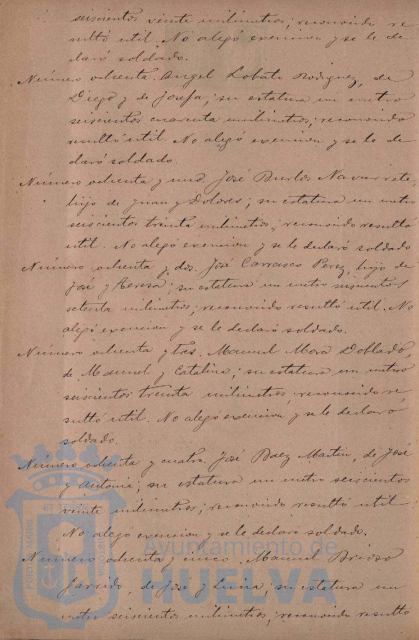 seiscientos veinte milimetros, reconocido re
sultó util. No alegó exencion y se le de
claró soldado.
Número ochenta. Angel Lobato Rodriguez, de
Diego y de Josefa; su estatura un metro
seiscientos cuarenta milimetros, reconocido
resultó util. No alegó exencion y se le de
claró soldado.
Número ochenta y uno. José Burlos Navarrete
hijo de Juan y Dolores; su estatura un metro
seiscientos treinta milimetros; reconocido resultó
util. No alegó exencion y se le declaró soldado
Número ochenta y dos. José Carrasco Perez, hijo de
José y Teresa; su estatura un metro seiscientos
setenta milimetros; reconocido resultó util. No
alegó exencion y se le declaró soldado.
Número ochenta y tres. Manuel Mora Doblado,
de Manuel y Catalina; su estatura un metro
seiscientos treinta milimetros, reconocido re
sultó util. No alegó exencion y se le declaró
soldado.
Número ochenta y cuatro. José Baez Martin, de José
y Antonia; su estatura un metro seiscientos
veinte milimetros; reconocido resultó util.
No alego exencion y se le declaró soldado.
Número ochenta y cinco. Manuel Brioso
Garrido, de José y Luisa, su estatura un
metro seiscientos milimetros; reconocido resultó
ayuntamiento de
HUELVA